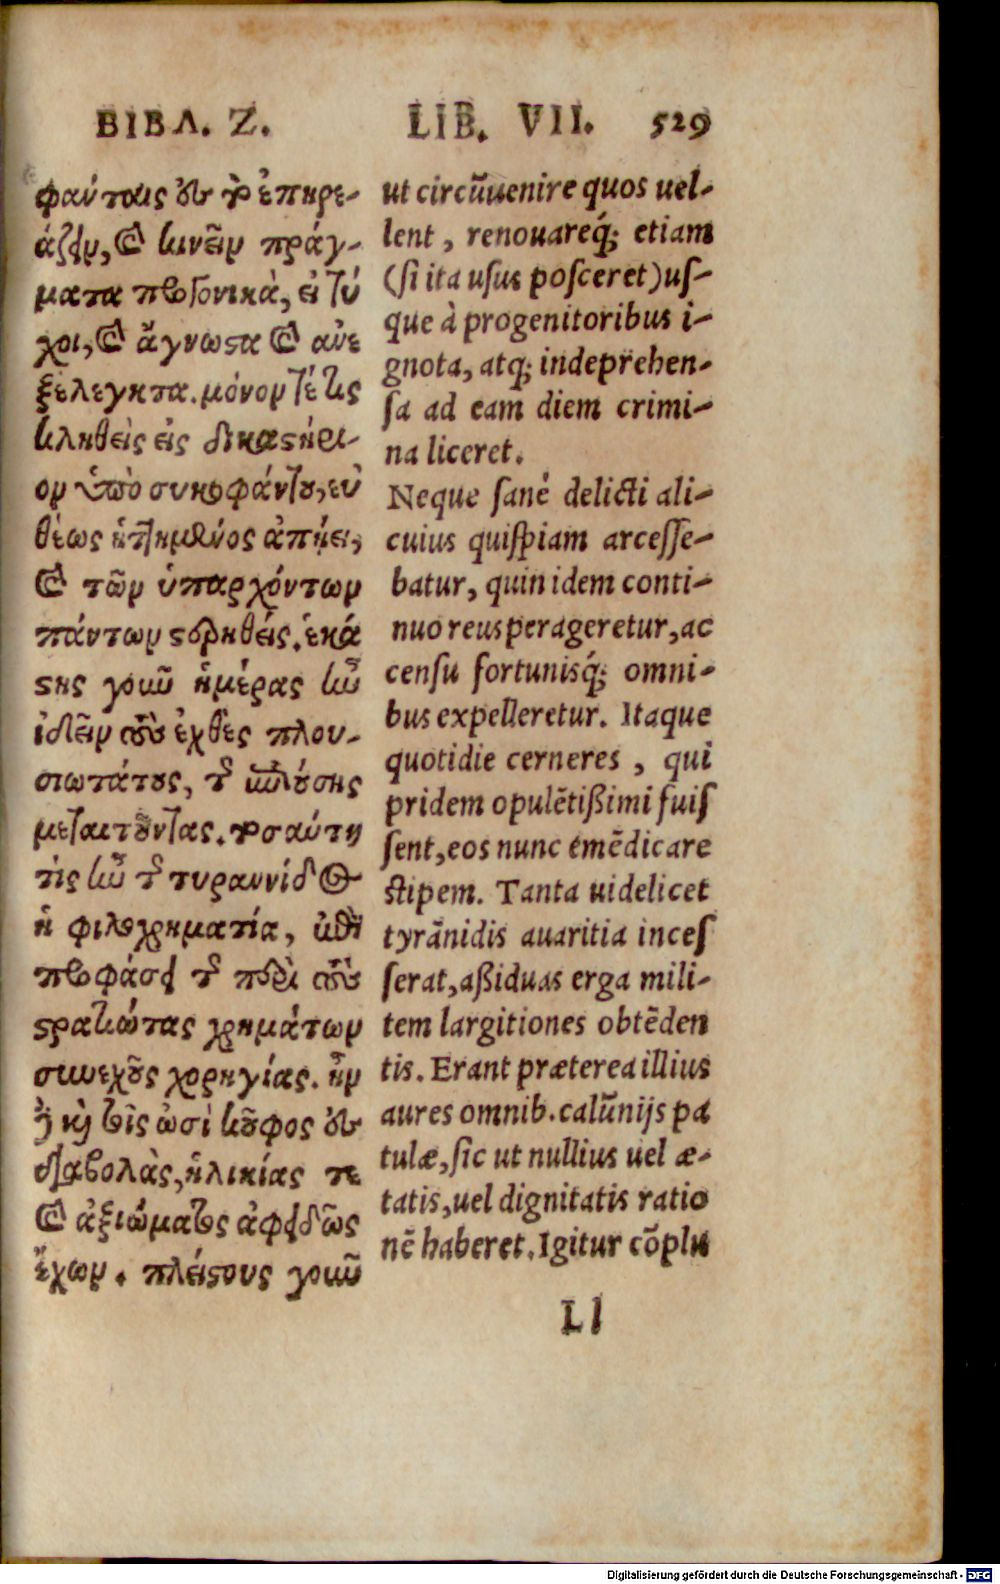 ΒΙΒΛ. Ζ. LIB. VII. 529
φαύταις εἰς τὸ ἐπηρε-
άζειν, καὶ κινεῖν πράγ-
ματα προγονικὰ, εἰ τύ
χοι, καὶ ἄγνωστα καὶ ἀνε
ξέλεγκτα. μόνον τέ τις
κληθεὶς εἰς δικαστήρι-
ον ὑπὸ συκοφάντου, εὐ
θέως ἡττημένος ἀπῄει,
καὶ τῶν ὑπαρχόντων
πάντων στερηθείς. ἑκά
στης γοῦν ἡμέρας ἦν
ἰδεῖν τοὺς ἐχθὲς πλου-
σιωτάτους, τῆς ἐπιούσης
μεταιτοῦντας. τοσαύτη
τίς ἦν τῆς τυραννίδος
ἡ φιλοχρηματία, ἐπὶ
προφάσει τῆς περὶ τοὺς
στρατιώτας χρημάτων
συνεχοῦς χορηγίας. ἦν
δὲ καὶ τοῖς ὠσὶ κοῦφος εἰς
διαβολὰς, ἡλικίας τε
καὶ ἀξιώματος ἀφειδῶς
ἔχων. πλείστους γοῦν
ut circũuenire quos uel-
lent, renouareq́; etiam
(si ita usus posceret) us-
que à progenitoribus i-
gnota, atq; indeprehen-
sa ad eam diem crimi-
na liceret.
Neque sanè delicti ali-
cuius quispiam arcesse-
batur, quin idem conti-
nuo reus perageretur, ac
censu fortunisq́; omni-
bus expelleretur. Itaque
quotidie cerneres, qui
pridem opulẽtißimi fuis
sent, eos nunc emẽdicare
stipem. Tanta uidelicet
tyrãnidis auaritia inces
serat, aßiduas erga mili-
tem largitiones obtẽden
tis. Erant præterea illius
aures omnib. calũnijs pa
tulæ, sic ut nullius uel æ-
tatis, uel dignitatis ratio
nẽ haberet. Igitur cõplu
Ll
Digitalisierung gefördert durch die Deutsche Forschungsgemeinschaft - DFG